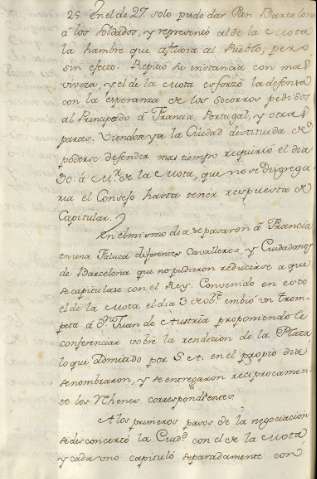 25 En el de 27 solo pudo dar Pan Barcelona
à los Soldados, y representó al de la Mota
la hambre que afligia al Pueblo, pero
sin efecto. Repitió la instancia con mas
viveza, y el de la Mota esforzó la defensa
con la esperanza de los socorros pedidos
al Principado à Francia, Portugal, y otras
partes. Viendose ya la Ciudad destituida de
poderse defender mas tiempo requirió el dia
30 à Mr. de la Mota, que no se disgrega
ria el Consejo hasta tener respuesta de
Capitular.
En el mismo dia se pasaron à Francia
en una Faluca diferentes Cavalleros, y Ciudadanos
de Barcelona que no pudieron reducirse a que
se capitulase con el Rey. Convenido en esto
el de la Mota el dia 3 embió un trom-
peta à Dn. Juan de Austria proponiendole
conferenciar sobre la rendicion de la Plaza
lo que admitido por S. A. en el propio dia
se nombraron, y se entregaron reciprocamen-
te los Rhenes correspondientes.
A los primeros pasos de la negociacion
se desconcertó la Ciudad con el de la Mota
y cada uno capituló separadamente con